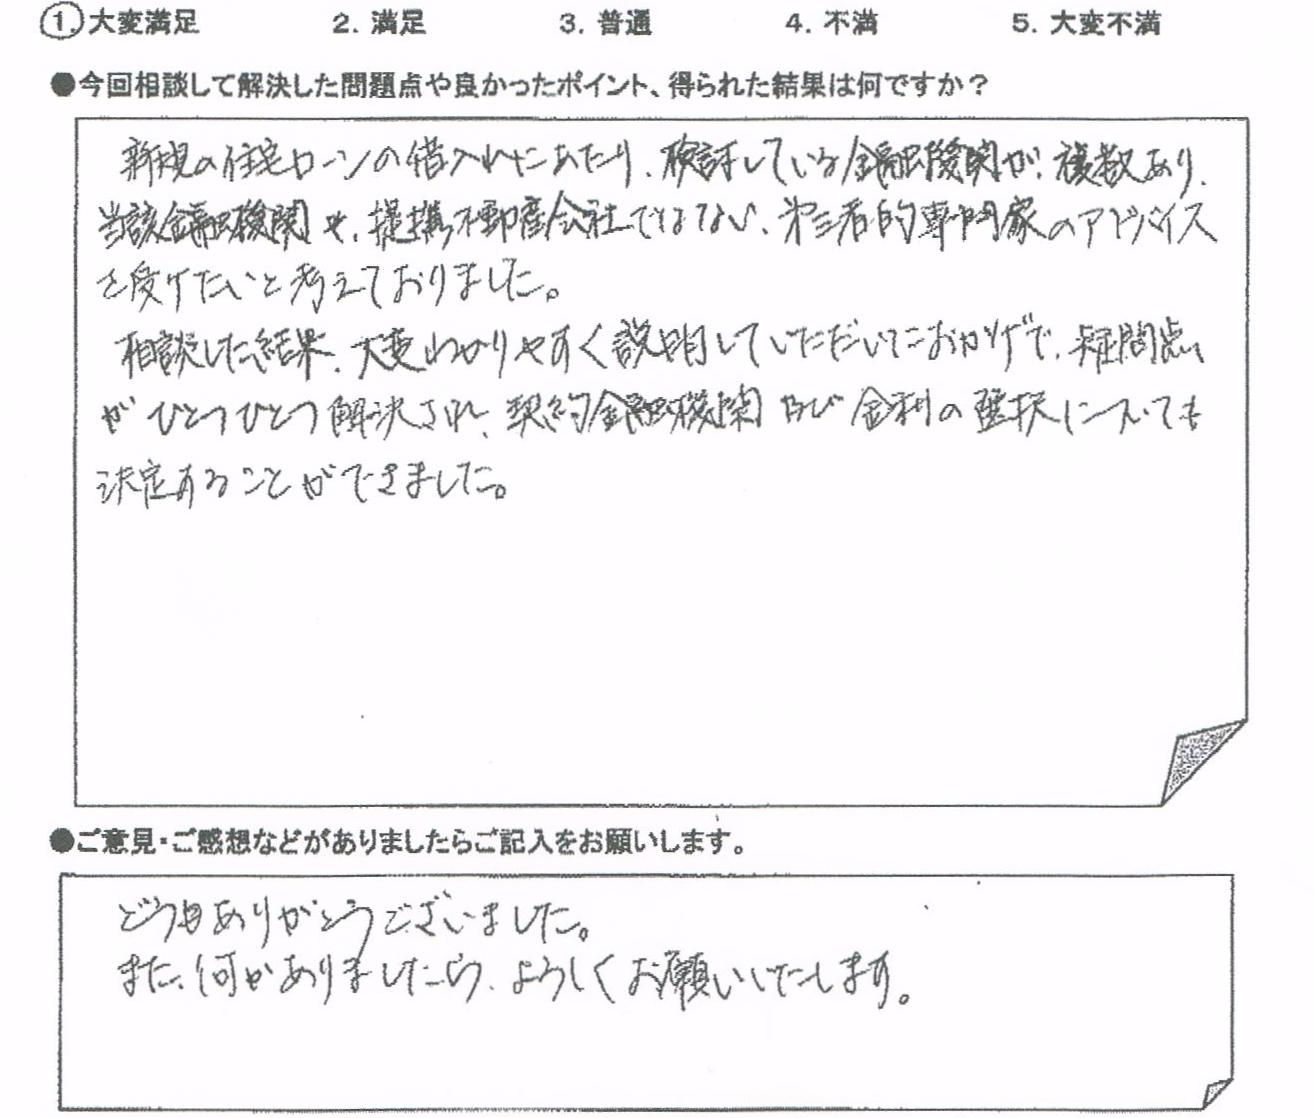 1. 大変満足 2. 満足 3. 普通 4. 不満 5. 大変不満
●今回相談して解決した問題点や良かったポイント、得られた結果は何ですか？
新規の住宅ローンの借入れにあたり、検討している金融機関が、複数あり、
当該金融機関や、提携不動産会社ではない、第三者的専門家のアドバイス
を受けたいと考えておりました。
相談した結果、大変わかりやすく説明していただいたおかげで、疑問点
がひとつひとつ解決され、契約金融機関及び金利の選択についても
決定することができました。
●ご意見・ご感想などがありましたらご記入をお願いします。
どうもありがとうございました。
また、何かありましたら、よろしくお願いいたします。